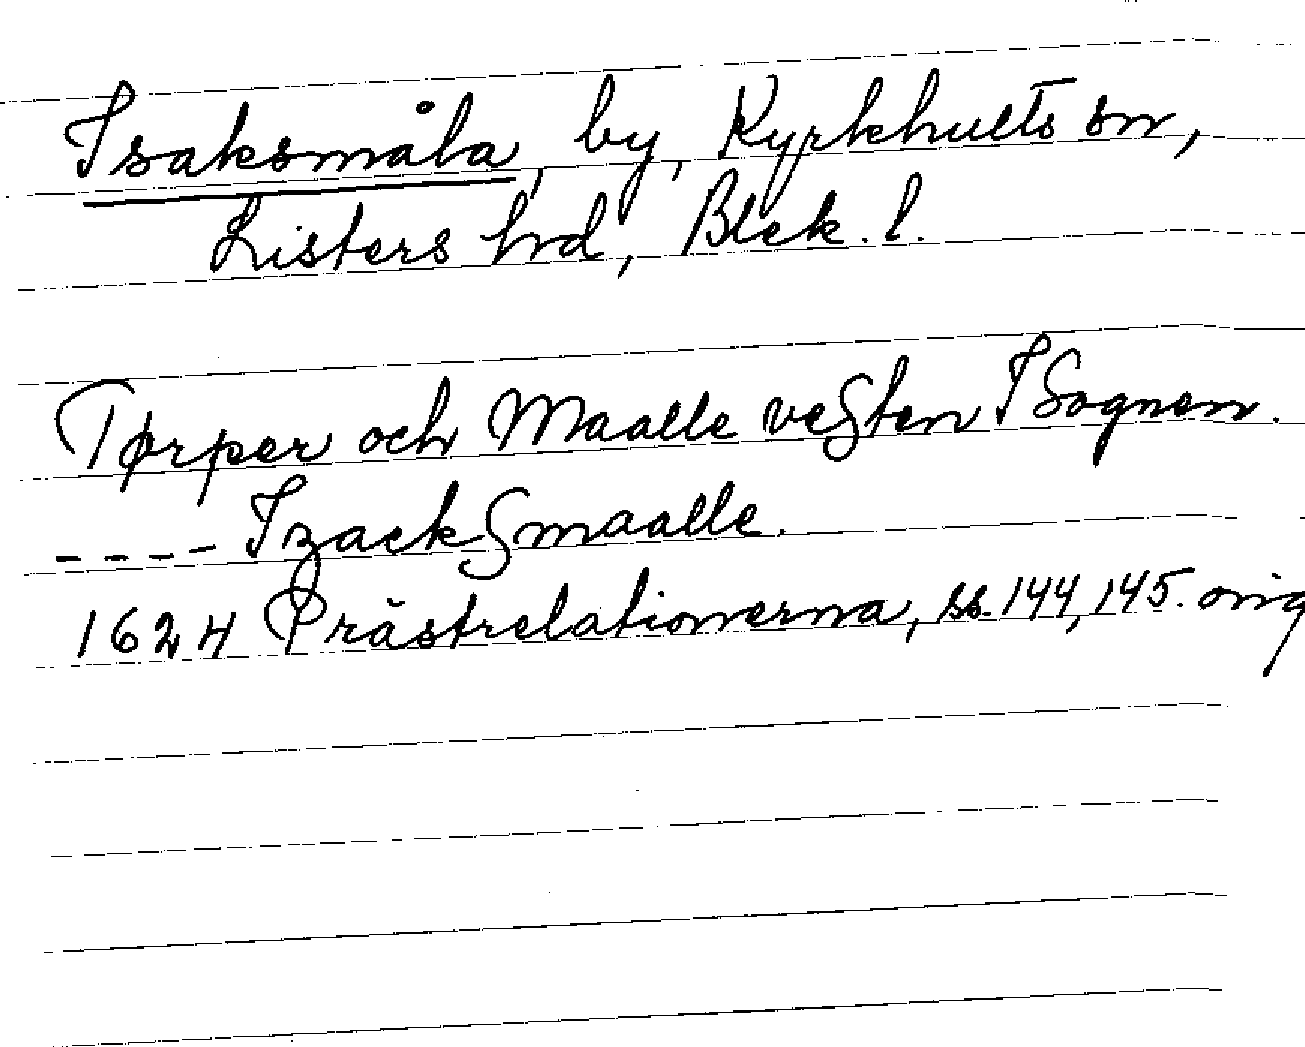 Isaksmåla, by, Kyrkhults sn,
Listers hd, Blek. l.
Tørper och Maalle veßten I Sognen.
---- IzackSmaalle.
1624 Prästrelationerna, ss. 144, 145. orig